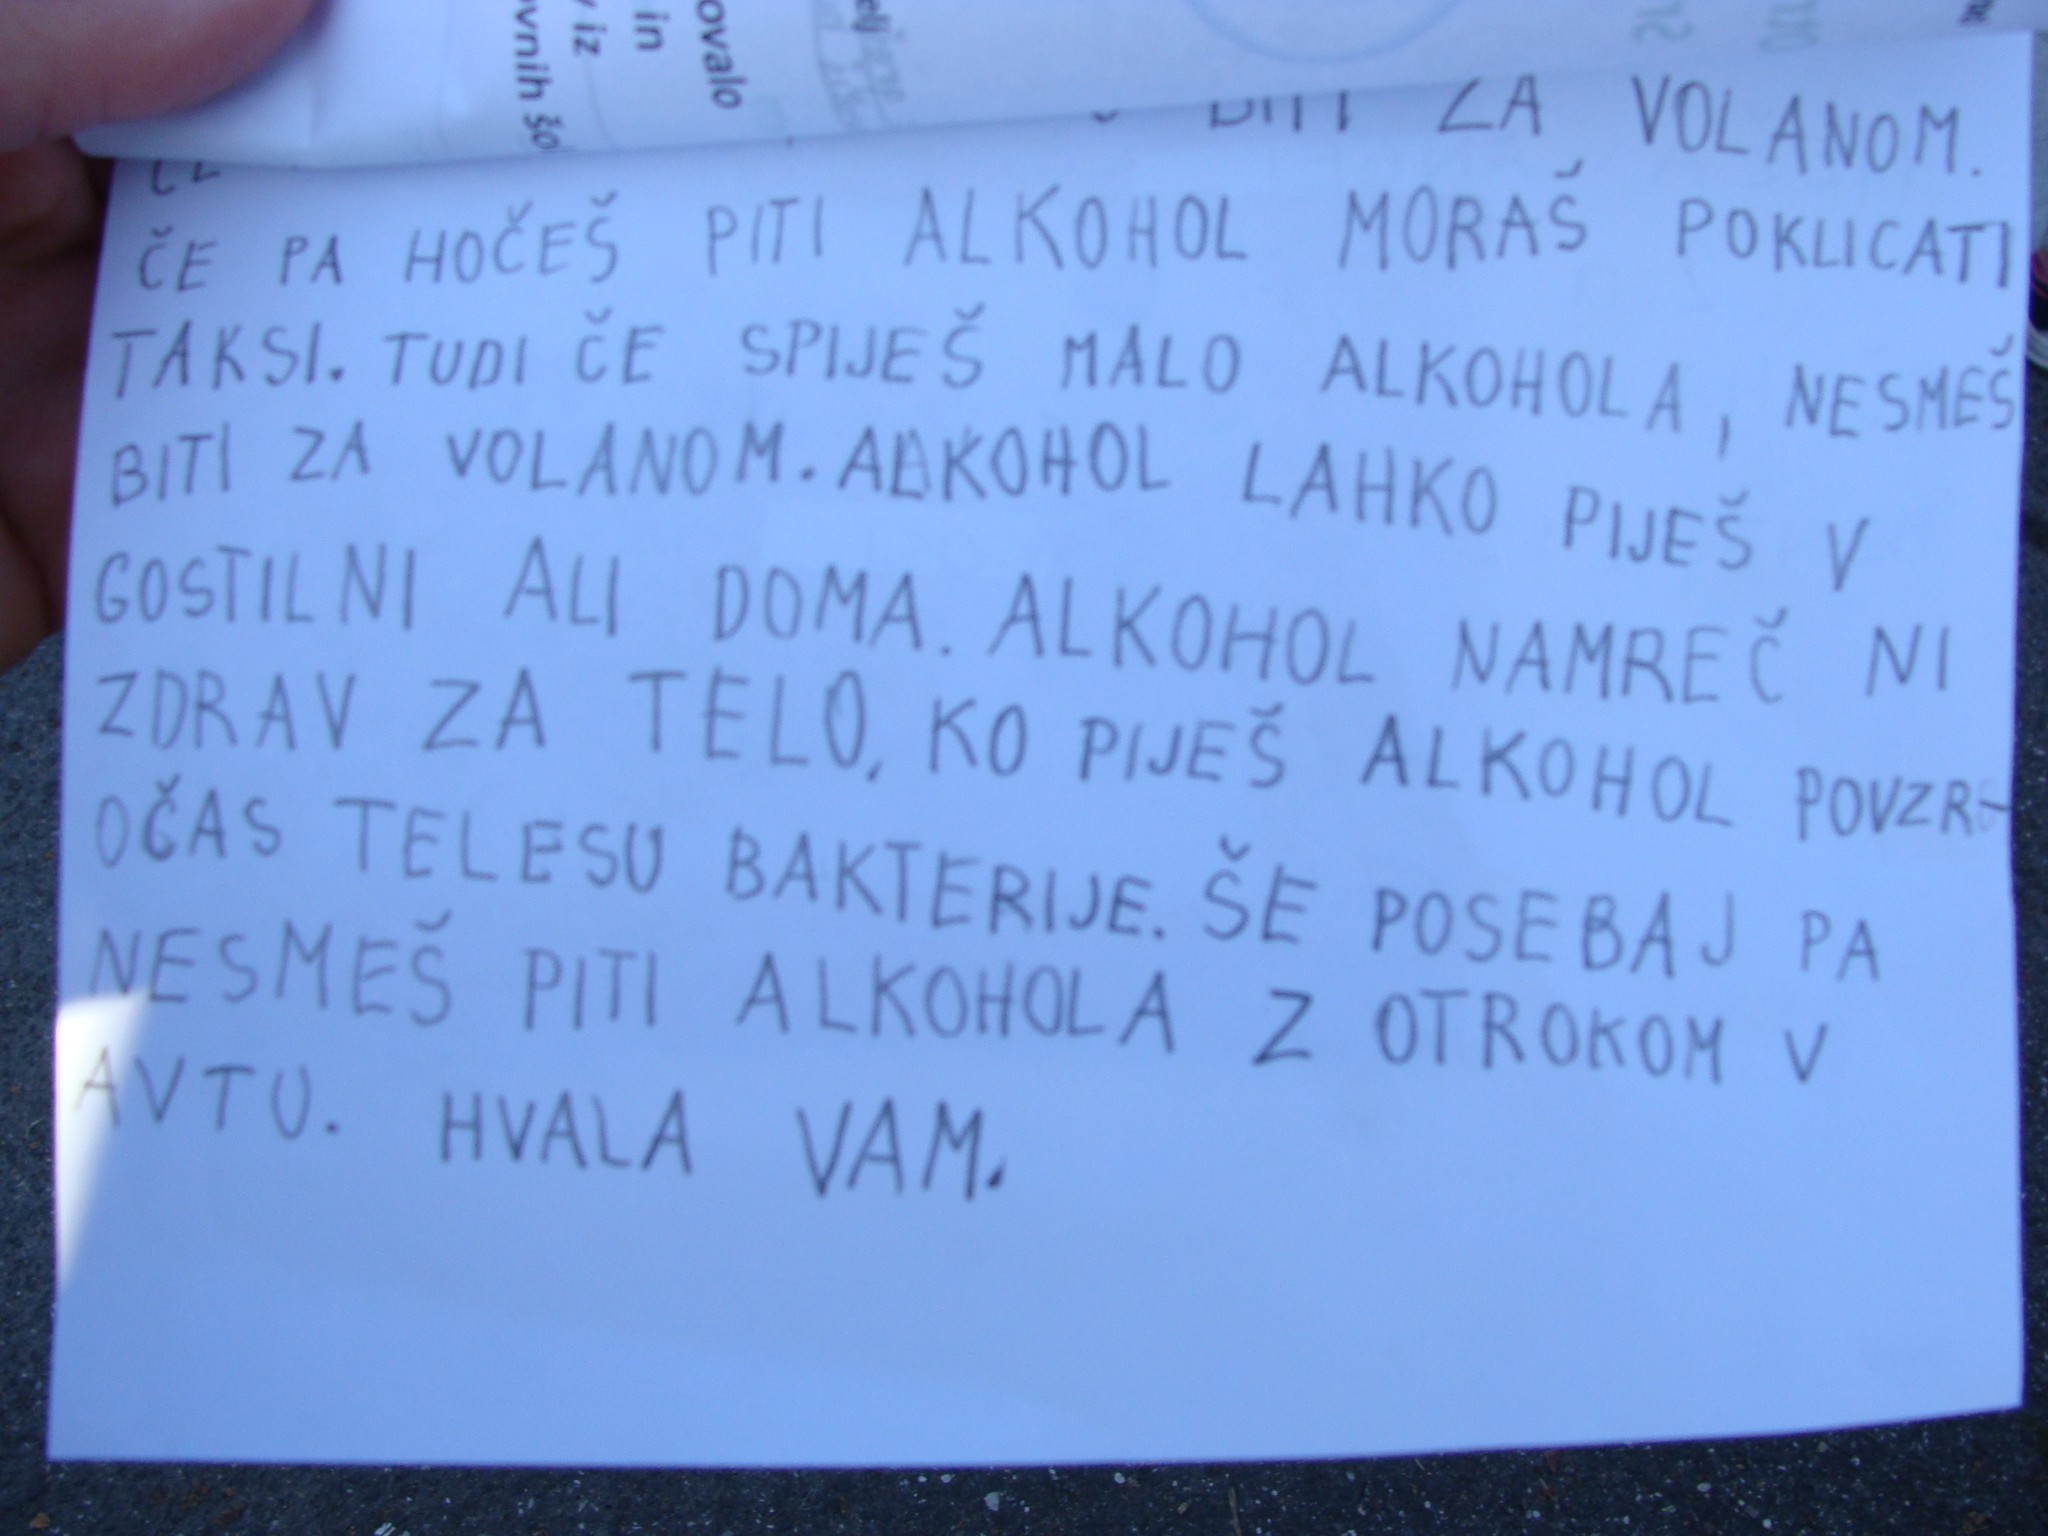 ovalo
in
iz
ovnih šo
ČE BITI ZA VOLANOM.
ČE PA HOČEŠ PITI ALKOHOL MORAŠ POKLICATI
TAKSI. TUDI ČE SPIJEŠ MALO ALKOHOLA, NESMEŠ
BITI ZA VOLANOM. ALKOHOL LAHKO PIJEŠ V
GOSTILNI ALI DOMA. ALKOHOL NAMREČ NI
ZDRAV ZA TELO, KO PIJEŠ ALKOHOL POVZR-
OČAS TELESU BAKTERIJE. ŠE POSEBAJ PA
NESMEŠ PITI ALKOHOLA Z OTROKOM V
AVTU. HVALA VAM.